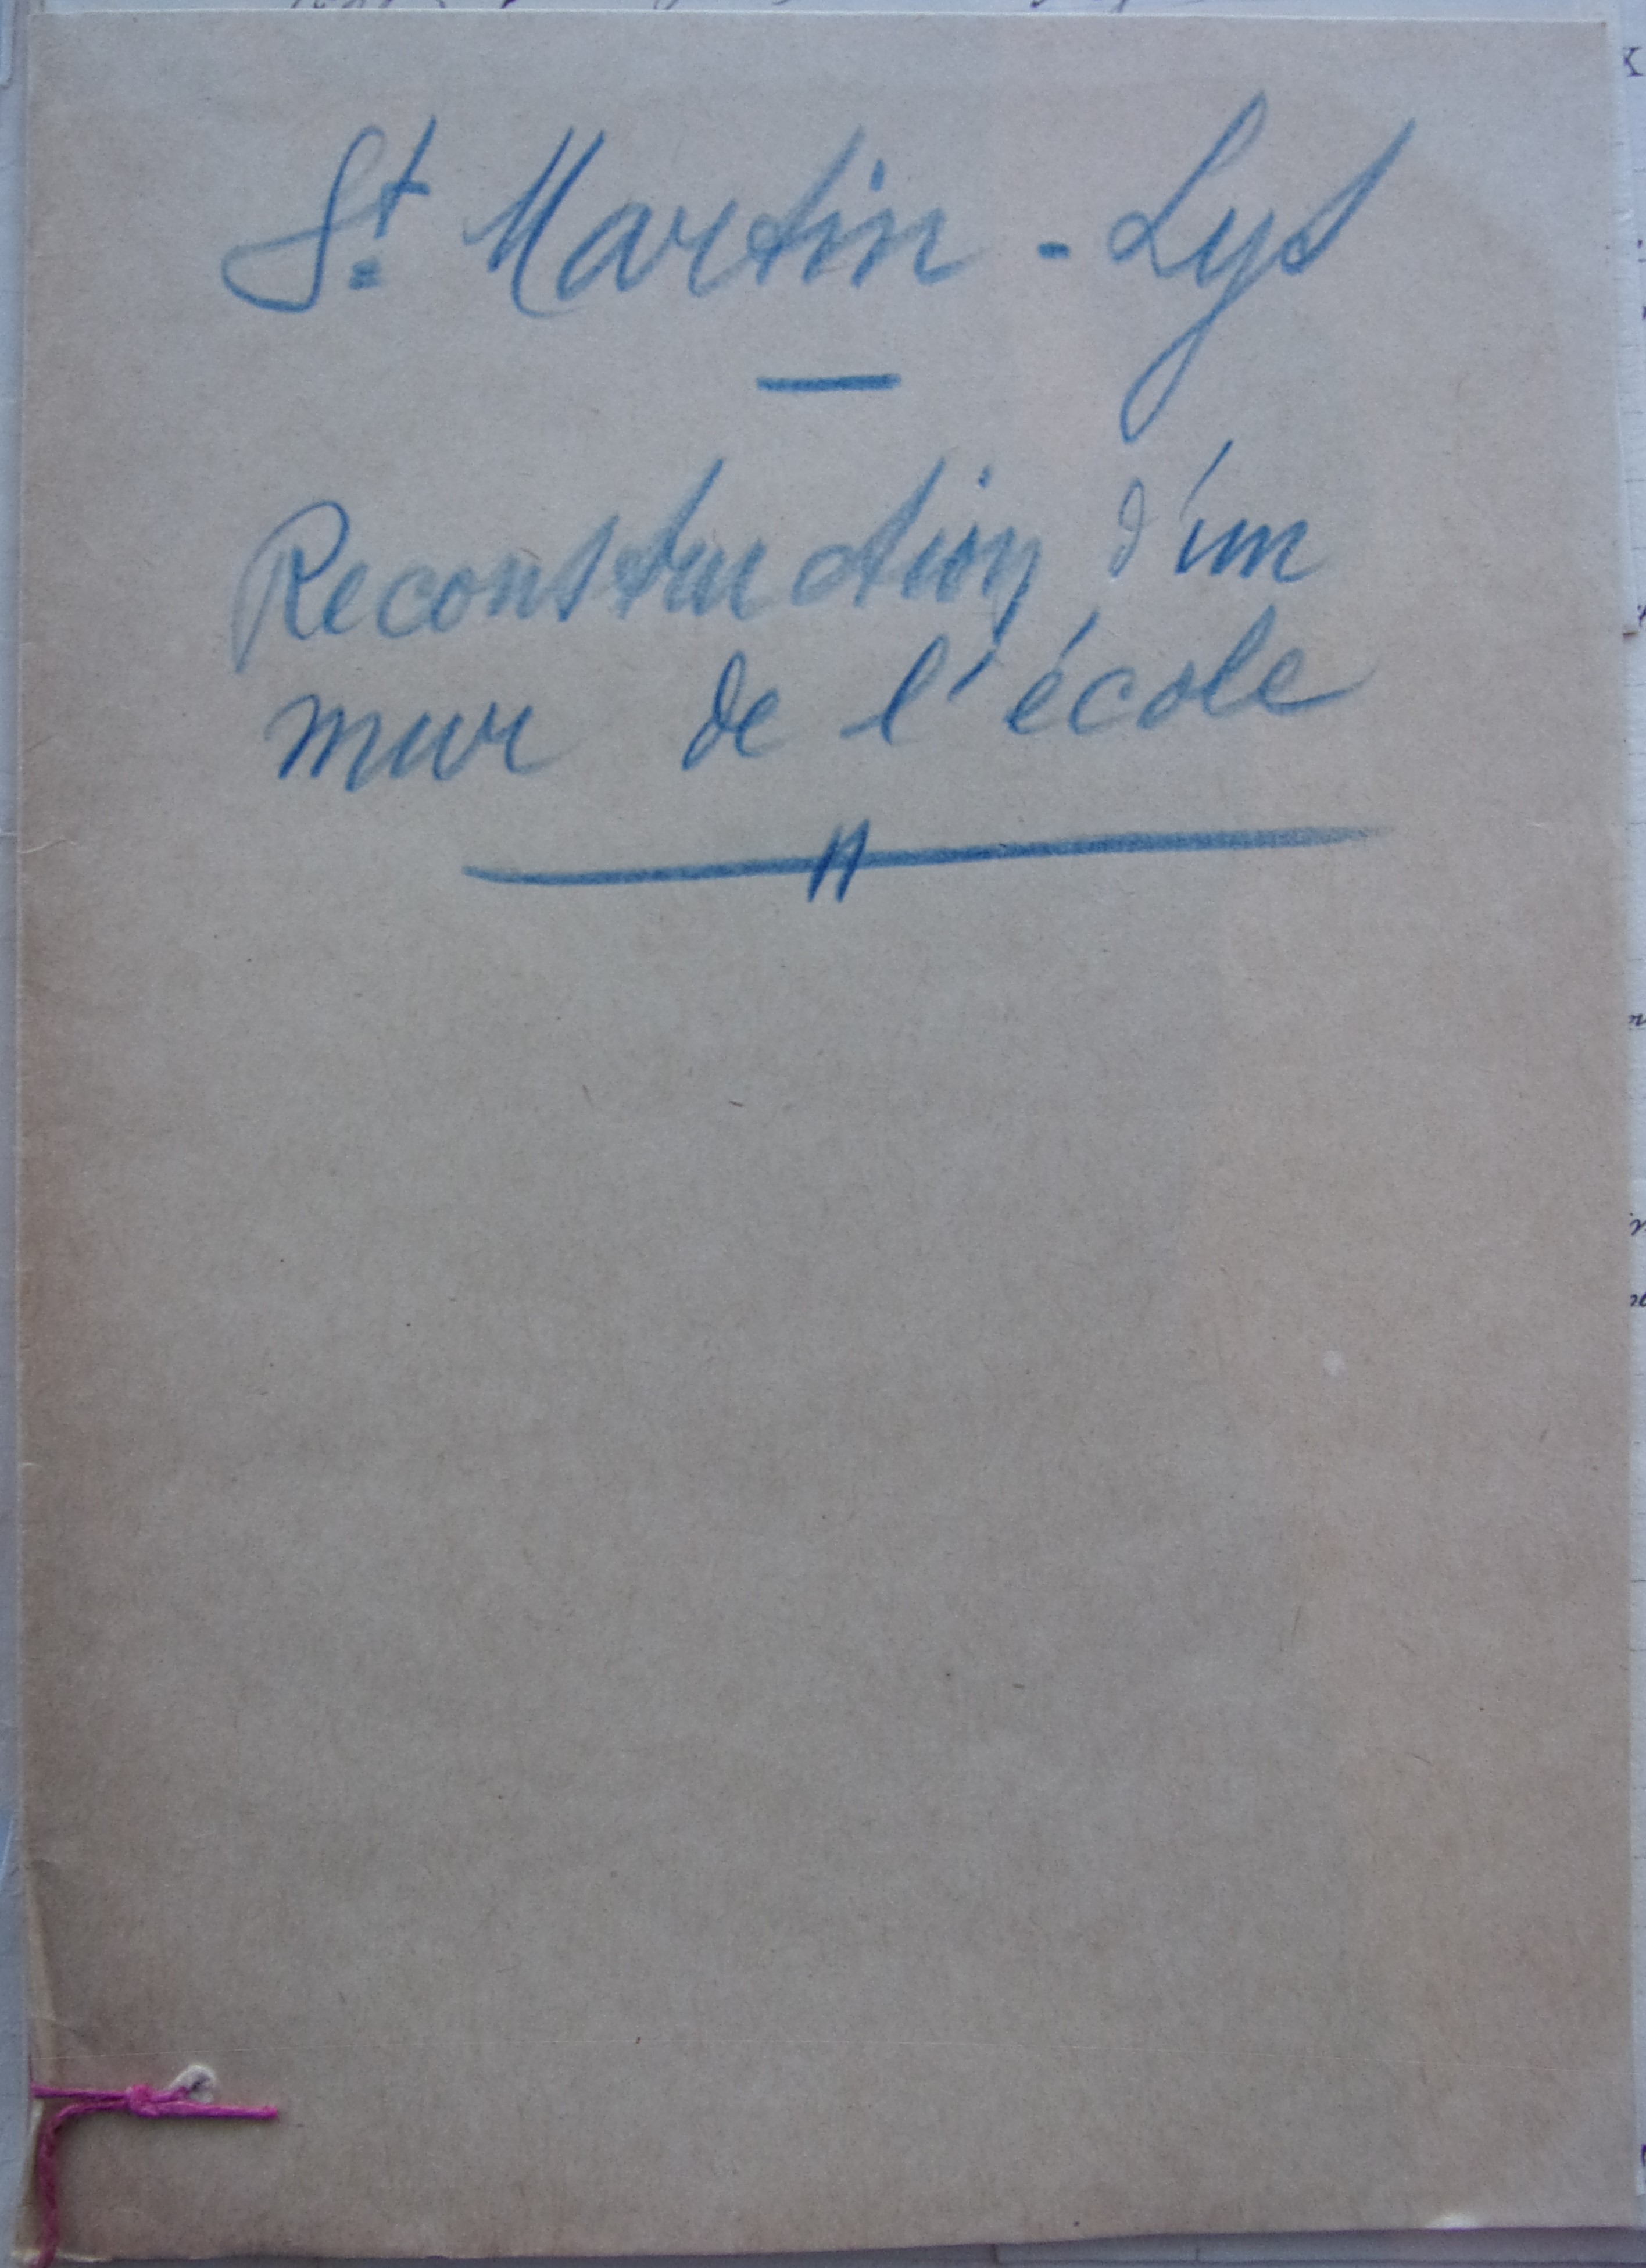 St Martin - Lys
Reconstruction d'un
mur de l'école